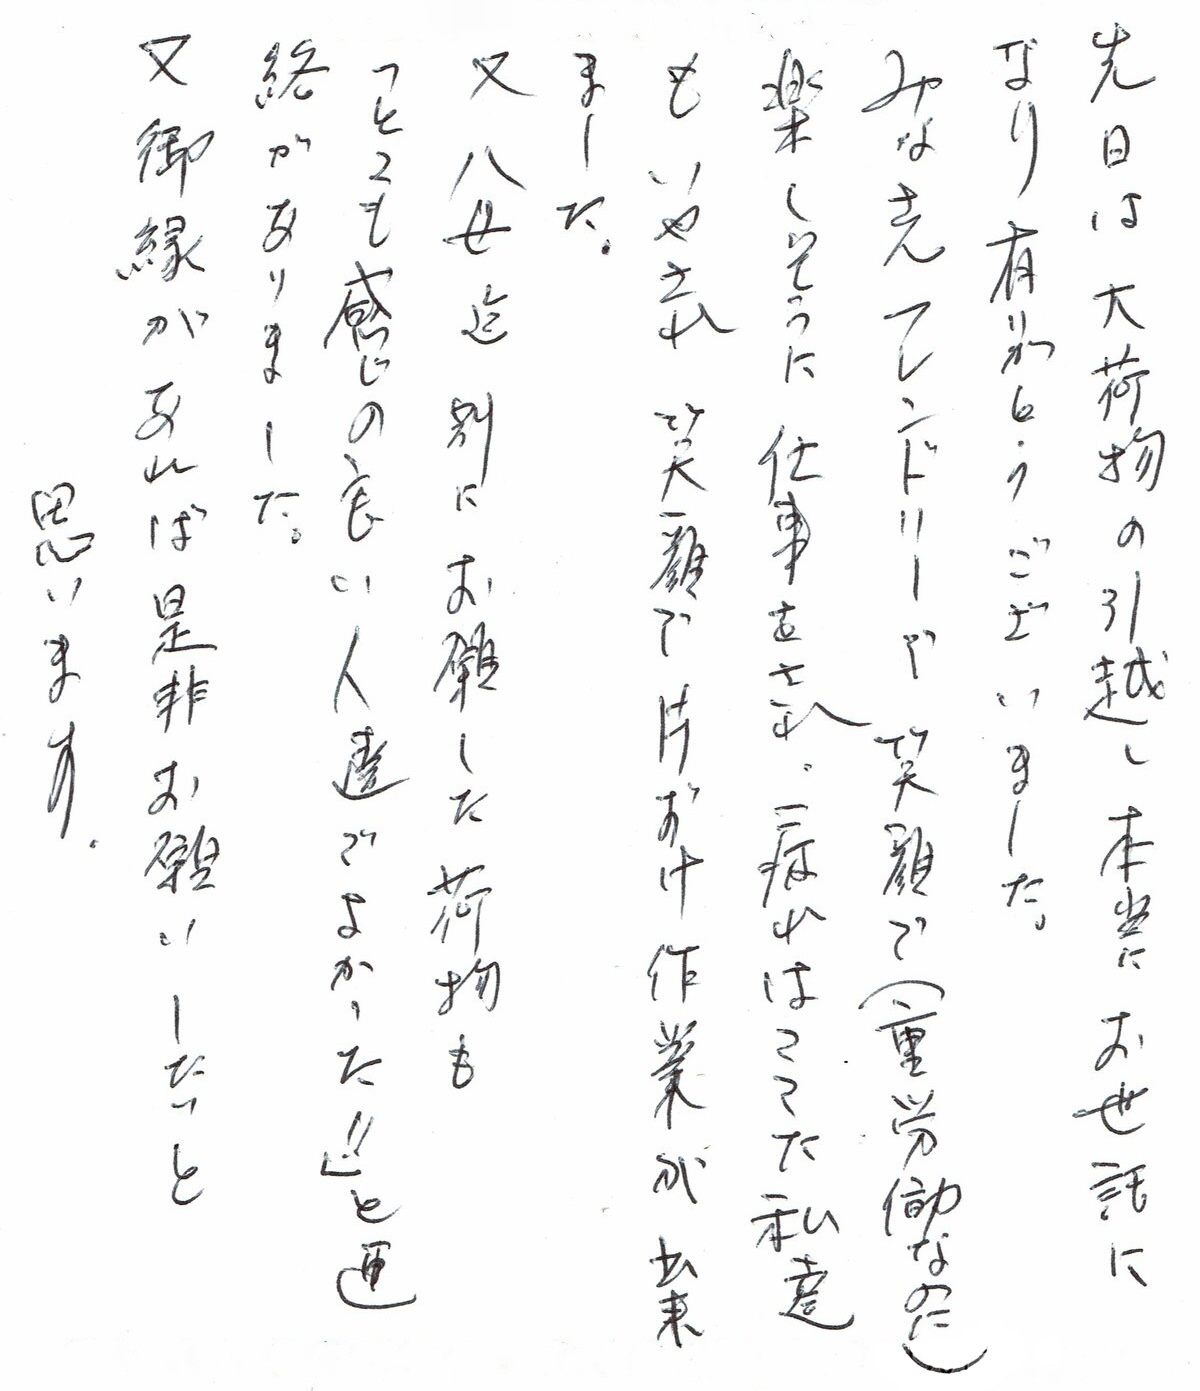 先日は大荷物の引越し本当にお世話に
なり有難とうございました。
みな先フレンドリーで笑顔で(重労働なのに)
楽しそうに仕事をされ、疲れはてた私達
もいやされ笑顔で片づけ作業が出来
ました。
又八女迄別にお願した荷物も
「とても感じの良い人達でよかった!!」と連
絡がありました。
又御縁があれば是非お願いしたいと
思います。